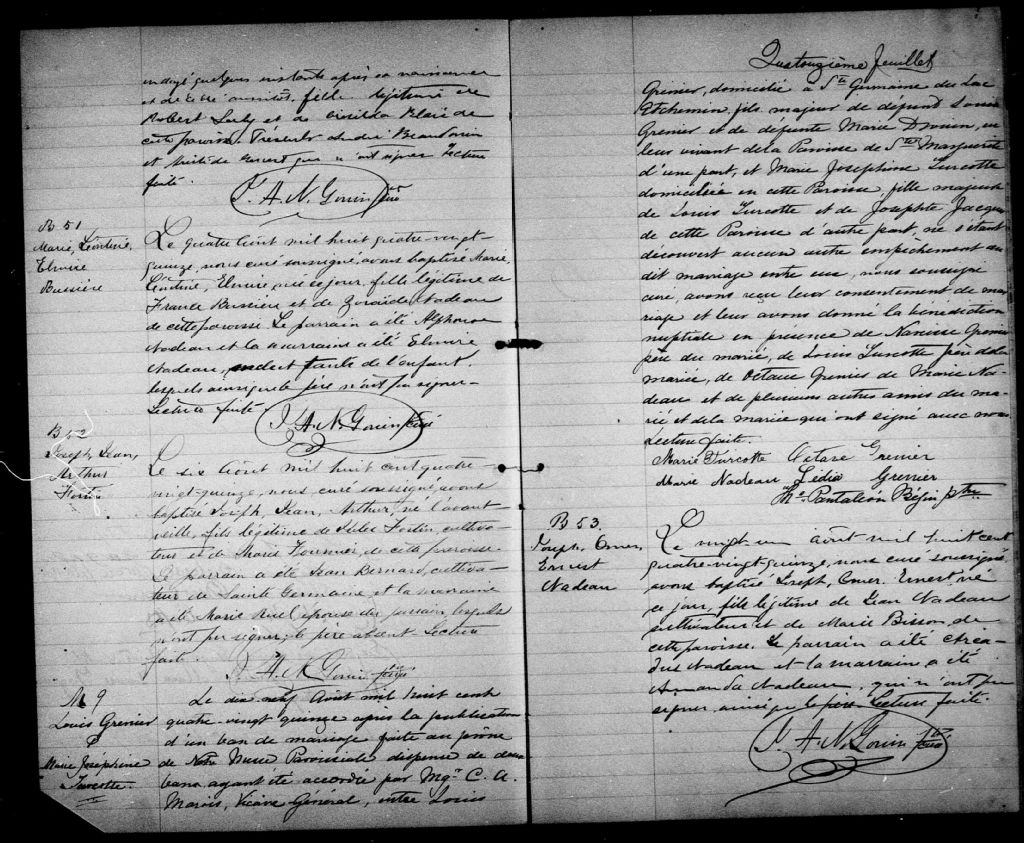 ondoyé quelques instants après sa naissance
et décédé aussitôt, fille légitime de
Robert et de Blais de
cette paroisse. Présents André Beaudoin
et qui n'ont signer. Lecture
faite.
J. A. N. Gouin Ptre
B 51
Marie, Léontine,
Elmire
Bussière
Le quatre Août mil huit quatre-vingt-
quinze, nous curé soussigné, avons baptisé Marie,
Léontine, Elmire, née ce jour, fille légitime de
France Bussière et de Zoraïde Nadeau
de cette paroisse. Le parrain a été Alphonse
Nadeau et la marraine a été Elmire
Nadeau, oncle et tante de l'enfant,
lesquels ainsi que le père n'ont pu signer.
Lecture faite.
J. A. N. Gouin Ptre
B 52
Joseph, Jean,
Arthur
Fortin
Le six Août mil huit cent quatre-
vingt-quinze, nous curé soussigné, avons
baptisé Joseph, Jean, Arthur, né l'avant
veille, fils légitime de Jules Fortin, cultiva-
teur et de Marie Fournier, de cette paroisse.
Le parrain a été Jean Bernard, cultiva-
teur de Sainte Germaine et la marraine
a été Marie épouse du parrain, lesquels
n'ont pu signer; le père absent. Lecture
faite.
J. A. N. Gouin Ptre
M 9
Louis Grenier
&
Marie Joséphine
Turcotte
Le dix neuf Août mil huit cent
quatre-vingt quinze après la publication
d'un ban de mariage faite au prône
de Notre Messe Paroissiale dispense de deux
bans ayant été accordée par Mgr C. A.
Marois, Vicaire Général, entre Louis
Quatorzième feuillet
Grenier, domicilié à Ste Germaine du Lac
Etchemin, fils majeur de défunt Louis
Grenier et de défunte Marie Drouin, en
leur vivant de la Paroisse de Ste Marguerite
d'une part, et Marie Josephine Turcotte
domiciliée en cette Paroisse, fille majeure
de Louis Turcotte et de Josephte Jacques
de cette Paroisse d'autre part, ne s'étant
découvert aucun autre empêchement au
dit mariage entre eux, nous soussigné
curé, avons reçu leur consentement de ma-
riage et leur avons donné la bénédiction
nuptiale en présence de Narcisse Grenier
père du marié, de Louis Turcotte père de la
mariée, de Octave Grenier de Marie Na-
deau et de plusieurs autres amis du ma-
rié et de la mariée qui ont signé avec nous.
Lecture faite.
Marie Turcotte Octave Grenier
Marie Nadeau Lédia Grenier
Ths Pantaléon Bégin ptre
B 53.
Joseph, Omer,
Ernest
Nadeau
Le vingt-un août mil huit cent
quatre-vingt-quinze, nous curé soussigné,
avons baptisé Joseph, Omer, Ernest né
ce jour, fils légitime de Jean Nadeau
cultivateur et de Marie Bisson, de
cette paroisse. Le parrain a été Arca-
dius Nadeau et la marraine a été
Amanda Nadeau, qui n'ont pu
signer, ainsi que le père. Lecture faite.
J. A. N. Gouin Ptre